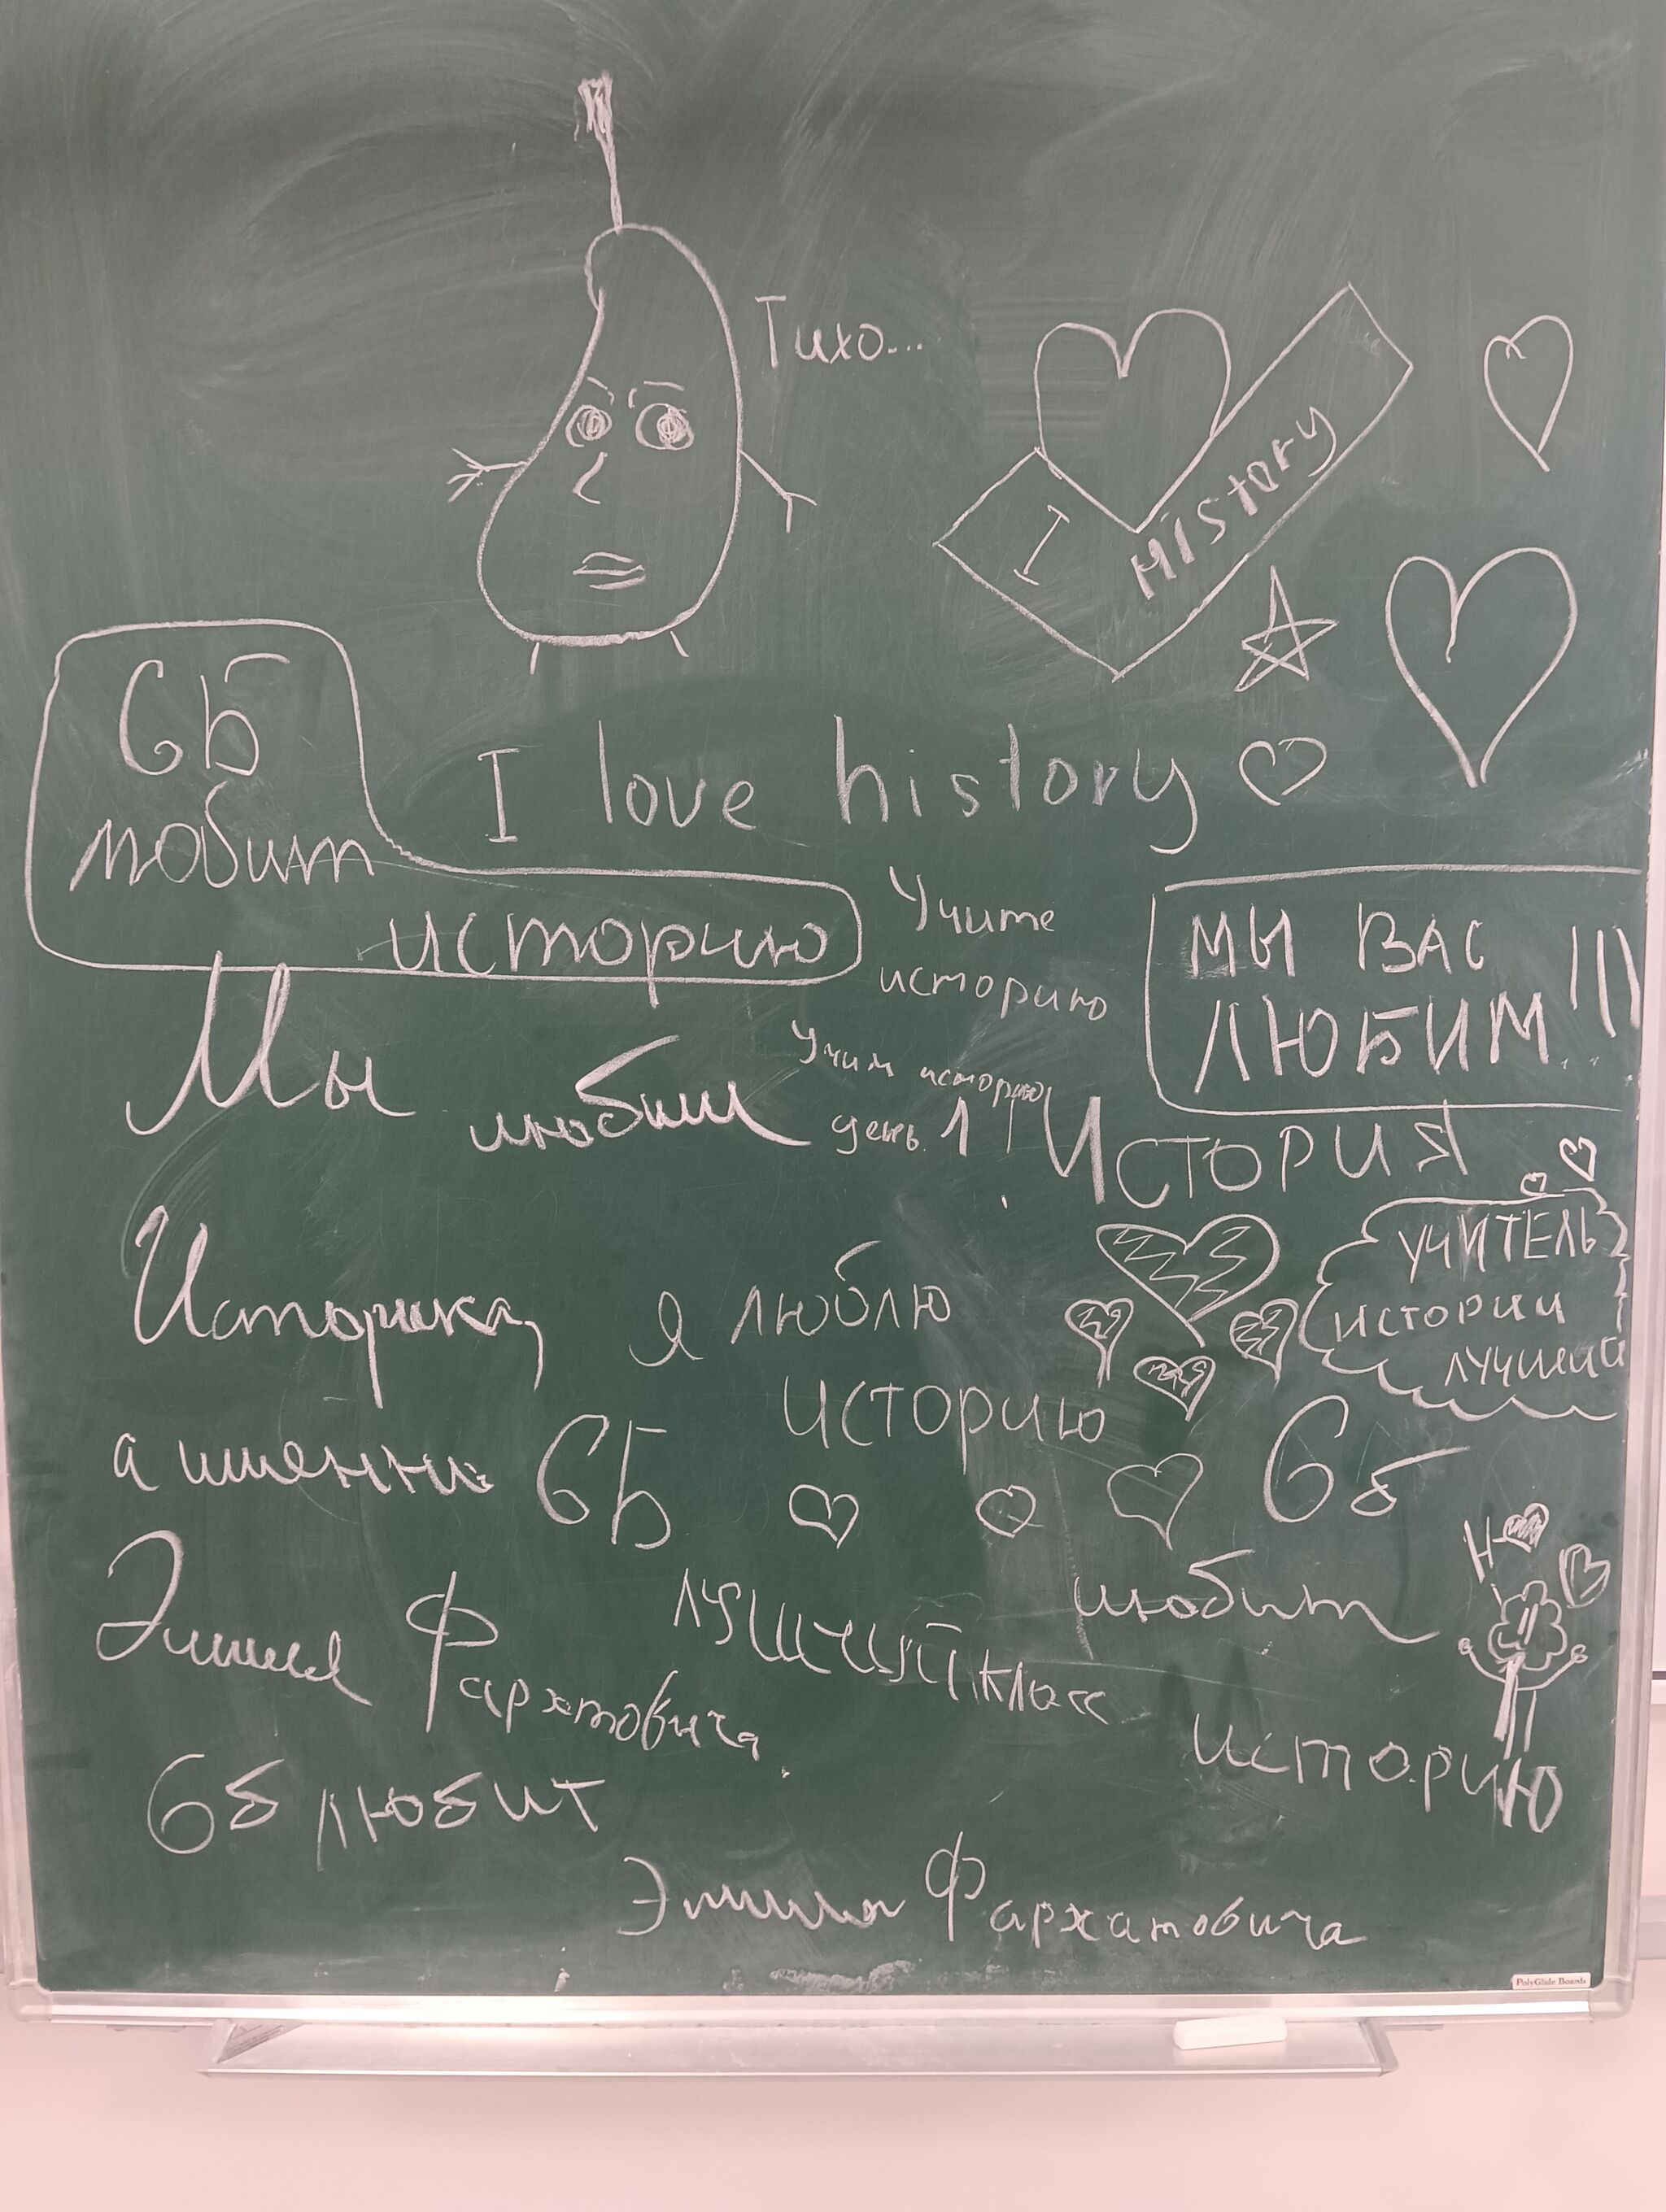 Тихо...
I History
6Б
любит
историю
I love history
Учите
историю
МЫ ВАС
ЛЮБИМ!!!
Мы любим
Учим историю
день 1
ИСТОРИЯ
Историка,
а именно
Эмиля Фархатовича
Я ЛЮБЛЮ
ИСТОРИЮ
6Б
УЧИТЕЛЬ
ИСТОРИИ
ЛУЧШИЙ
6б
любит
историю
класс
6б любит
Эмиля Фархатовича
PolyGlide Boards